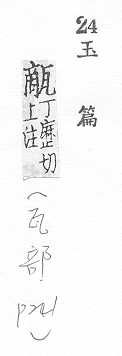 24
玉篇
甋丁歷切
上注
(瓦部 P241)